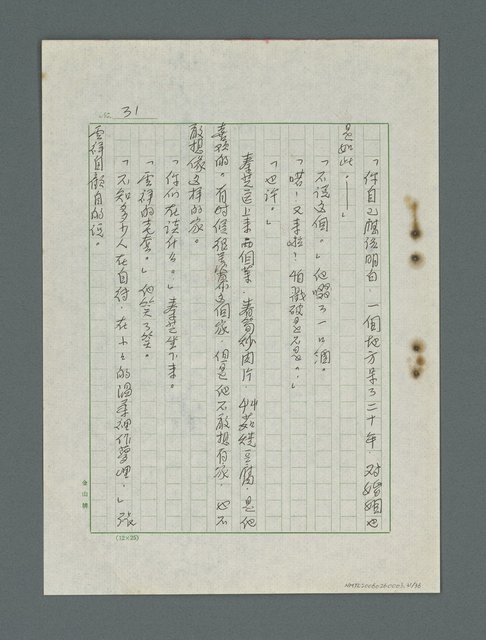 No. 31
「你自己應該明白，一個地方呆了二十年，對婚姻也
是如此。——」
「不談這個。」他啜了一口酒。
「喏！又來啦！怕戳破是不是。」
「也許。」
秦芝送上來兩個菜，青筍炒肉片，蘑菇燒豆腐，是他
喜歡的。有時候很羨慕這個家，但是他不敢想有家，也不
敢想像這樣的家。
「你們在談什么。」秦芝坐下來。
「雲祥的老套。」他笑了笑。
「不知多少人在自待，在小小的溫柔裡作夢哩。」張
雲祥自顧自的說。
金山牌
(12×25)
NMTL20060260003. 31/36